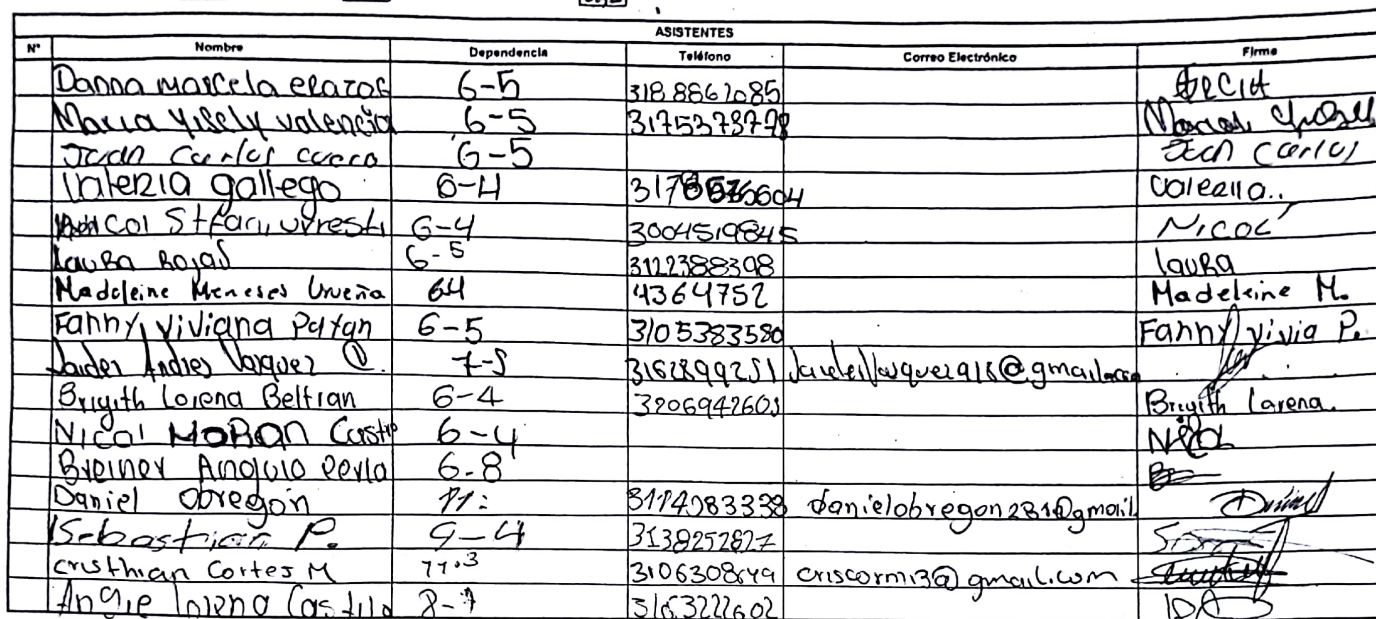 ASISTENTES
N° Nombre Dependencia Teléfono Correo Electrónico Firma
Danna marcela 6-5 3188862085
Maria Yisely valencia 6-5 3175373778
Juan Carlos cuero 6-5 Juan Carlos
Valeria gallego 6-4 valeria..
6-4 3004519845 Nicol
Laura Rojas 6-5 3122388398 laura
Madeleine Meneses Urueña 64 4364752 Madeleine M.
Fanny viviana Payan 6-5 3105383580 Fanny vivia P.
Jaider Andres Vasquez 7-5 3162899251
Brigith Lorena Beltran 6-4 Brigith Lorena.
Nicol MORAN Castro 6-4 Nicol
Breiner Angulo Perla 6-8
Daniel Obregon 11: danielobregon281@gmail Daniel
Sebastian P. 9-4 3138252827
cristhian Cortes M 11.3 criscormi3@gmail.com
Angie lorena Castillo 8-7 3163222602